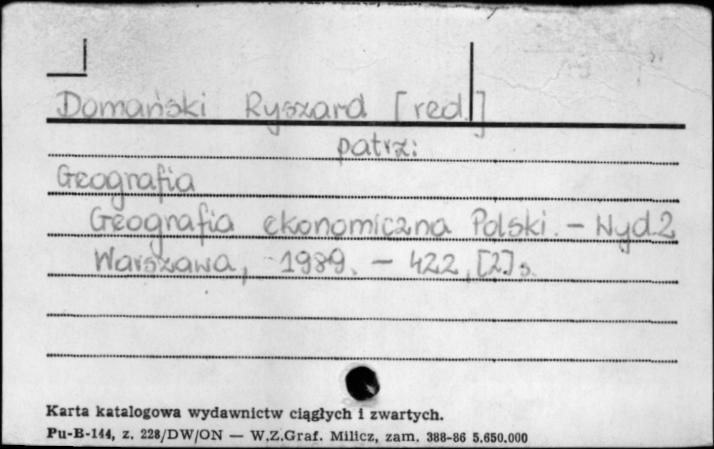 Domański Ryszard [red.]
patrz:
Geografia
Geografia ekonomiczna Polski. – Wyd.2
Warszawa, 1989. – 422, [2] s.
Karta katalogowa wydawnictw ciągłych i zwartych.
Pu-B-144, z. 228/DW/ON — W.Z.Graf. Milicz, zam. 388-86 5.650.000